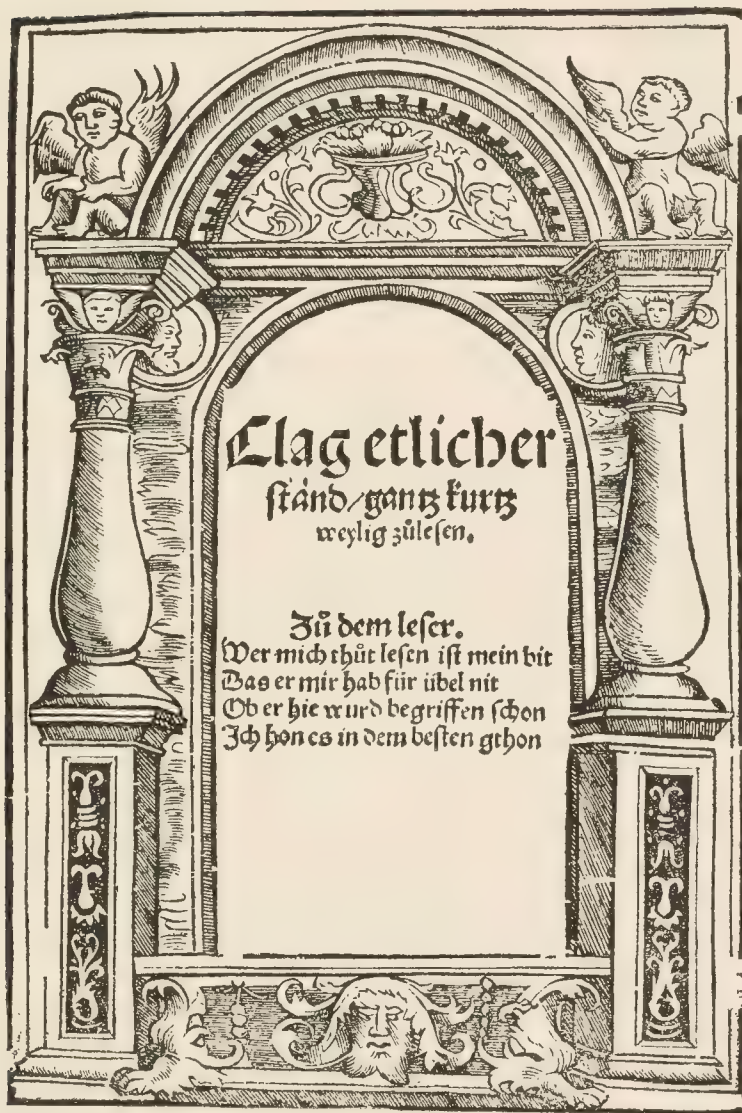 Clag etlicher
ständ/gantz kurtz
weylig zůlesen.
Zů dem leser.
Wer mich thůt lesen ist mein bit
Das er mir hab für übel nit
Ob er hie wurd begriffen schon
Ich hon es in dem besten gthon